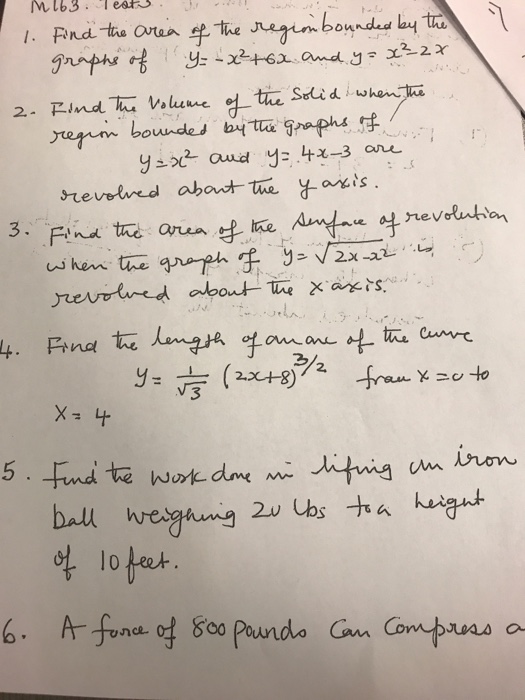 M163. Test 3
1. Find the area of the region bounded by the
graphs of y = -x²+6x and y = x²-2x
2. Find the Volume of the Solid when the
region bounded by the graphs of
y=x² and y= 4x-3 are
revolved about the y axis.
3. Find the area of the surface of revolution
when the graph of y= √2x-x² is
revolved about the x axis.
4. Find the length of an arc of the curve
y= 1/√3 (2x+8)^3/2 from x=0 to
x= 4
5. Find the work done in lifting an iron
ball weighing 20 lbs to a height
of 10 feet.
6. A force of 800 pounds can compress a